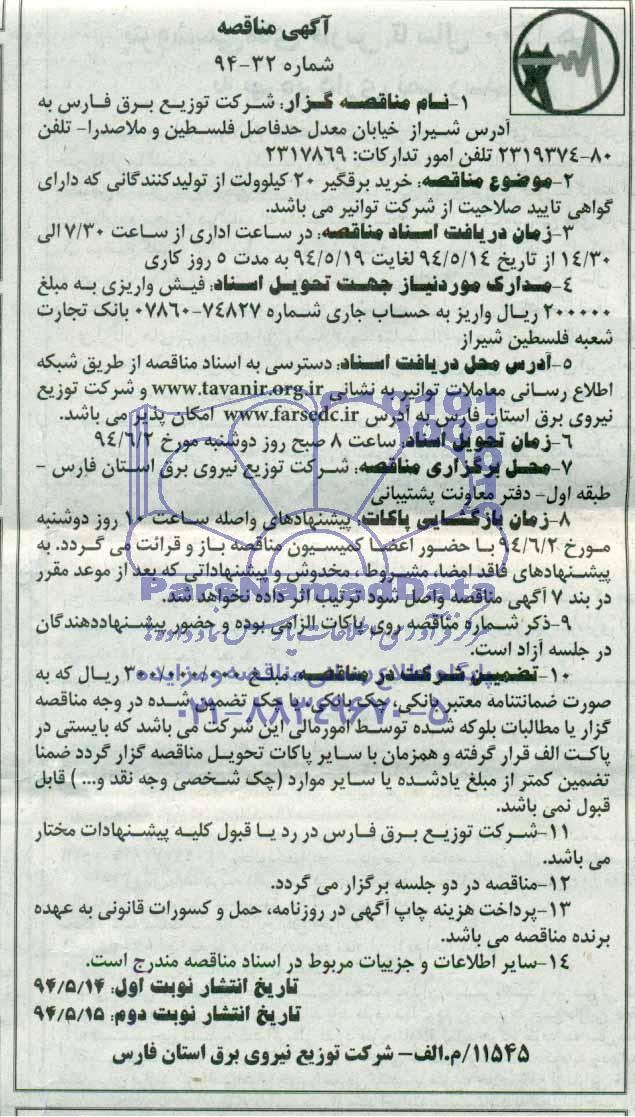 آگهی مناقصه
شماره ۳۲-۹۴
۱-نام مناقصه گزار: شرکت توزیع برق فارس به
آدرس شیراز خیابان معدل حدفاصل فلسطین و ملاصدرا- تلفن
۸۰-۲۳۱۹۳۷۴ تلفن امور تدارکات: ۲۳۱۷۸۶۹
۲-موضوع مناقصه: خرید برقگیر ۲۰ کیلوولت از تولیدکنندگانی که دارای
گواهی تایید صلاحیت از شرکت توانیر می باشد.
۳-زمان دریافت اسناد مناقصه: در ساعت اداری از ساعت ۷/۳۰ الی
۱۴/۳۰ از تاریخ ۹۴/۵/۱۴ لغایت ۹۴/۵/۱۹ به مدت ۵ روز کاری
۴-مدارک موردنیاز جهت تحویل اسناد: فیش واریزی به مبلغ
۲۰۰۰۰۰ ریال واریز به حساب جاری شماره ۷۴۸۲۷-۰۷۸۶۰ بانک تجارت
شعبه فلسطین شیراز
۵-آدرس محل دریافت اسناد: دسترسی به اسناد مناقصه از طریق شبکه
اطلاع رسانی معاملات توانیر به نشانی www.tavanir.org.ir و شرکت توزیع
نیروی برق استان فارس به آدرس www.farsedc.ir امکان پذیر می باشد.
۶-زمان تحویل اسناد: ساعت ۸ صبح روز دوشنبه مورخ ۹۴/۶/۲
۷-محل برگزاری مناقصه: شرکت توزیع نیروی برق استان فارس -
طبقه اول- دفتر معاونت پشتیبانی
۸-زمان بازگشایی پاکات: پیشنهادهای واصله ساعت ۱۰ روز دوشنبه
مورخ ۹۴/۶/۲ با حضور اعضا کمیسیون مناقصه باز و قرائت می گردد. به
پیشنهادهای فاقد امضا، مشروط، مخدوش و پیشنهاداتی که بعد از موعد مقرر
در بند ۷ آگهی مناقصه واصل شود ترتیب اثر داده نخواهد شد.
۹-ذکر شماره مناقصه روی پاکات الزامی بوده و حضور پیشنهاددهندگان
در جلسه آزاد است.
۱۰-تضمین شرکت در مناقصه: مبلغ ۳۰۰/۰۰۰/۰۰۰ ریال که به
صورت ضمانتنامه معتبر بانکی، چک بانکی، یا چک تضمین شده در وجه مناقصه
گزار یا مطالبات بلوکه شده توسط امورمالی این شرکت می باشد که بایستی در
پاکت الف قرار گرفته و همزمان با سایر پاکات تحویل مناقصه گزار گردد ضمنا
تضمین کمتر از مبلغ یادشده یا سایر موارد (چک شخصی وجه نقد و...) قابل
قبول نمی باشد.
۱۱-شرکت توزیع برق فارس در رد یا قبول کلیه پیشنهادات مختار
می باشد.
۱۲-مناقصه در دو جلسه برگزار می گردد.
۱۳-پرداخت هزینه چاپ آگهی در روزنامه، حمل و کسورات قانونی به عهده
برنده مناقصه می باشد.
۱۴-سایر اطلاعات و جزییات مربوط در اسناد مناقصه مندرج است.
تاریخ انتشار نوبت اول: ۹۴/۵/۱۴
تاریخ انتشار نوبت دوم: ۹۴/۵/۱۵
۱۱۵۴۵/م.الف- شرکت توزیع نیروی برق استان فارس
ParsNamadData
پایگاه اطلاع رسانی مناقصه و مزایده
۰۲۱-۸۸۳۴۹۶۷۰-۵